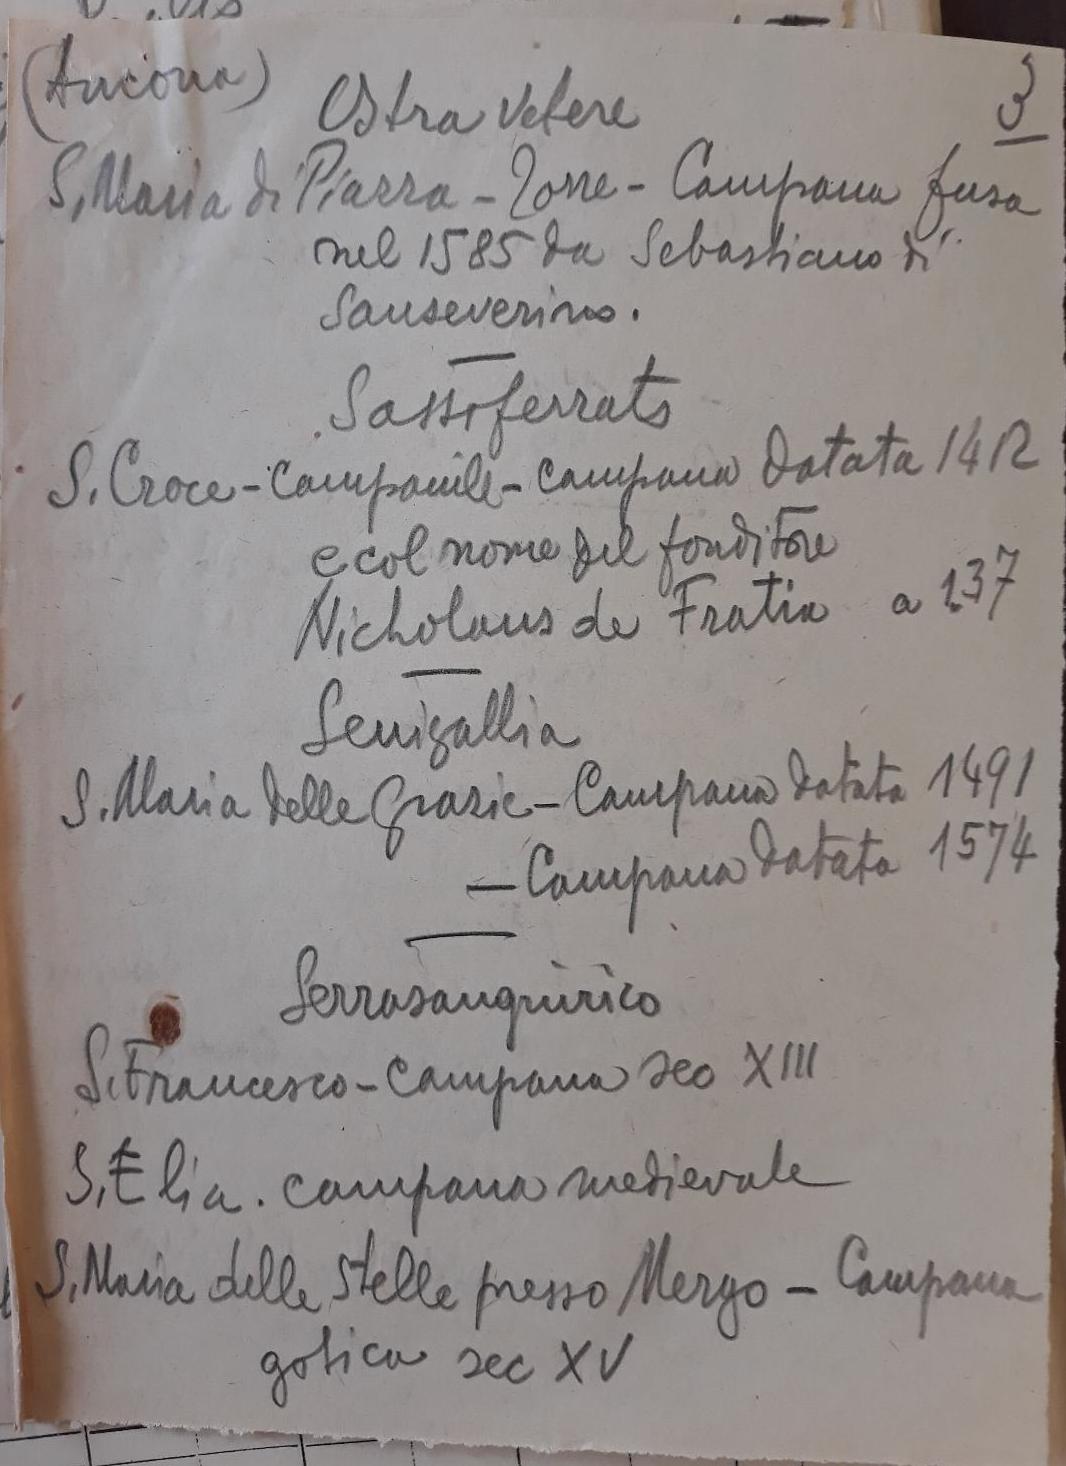 (Ancona)
3
Ostra Vetere
S. Maria di Piazza - Torre - Campana fusa
nel 1585 da Sebastiano di
Sanseverino.
Sassoferrato
S. Croce - campanile - campana datata 1412
e col nome del fonditore
Nicholaus de Fratia a 137
Senigallia
S. Maria delle Grazie - Campana datata 1491
— Campana datata 1574
Serrasanquirico
S. Francesco - campana sec XIII
S. Elia. campana medievale
S. Maria delle Stelle presso Mergo - Campana
gotica sec XV